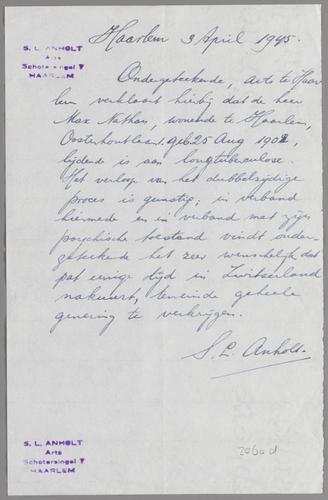 S. L. ANHOLT
Arts
Schotersingel 7
HAARLEM
Haarlem 3 April 1945.
Ondergetekende, arts te Haar
lem verklaart hierbij dat de heer
Max Nathan, wonende te Haarlem,
Oosterhoutlaan 1, geb 25 Aug 1902,
lijdende is aan longtuberculose.
Het verloop van het dubbelzijdige
proces is gunstig; in verband
hiermede en in verband met zijn
psychische toestand vindt onder-
getekende het zeer wenschelijk dat
pat eenige tijd in Zwitserland
nakuurt, teneinde geheele
genezing te verkrijgen.
S. L. Anholt.
S. L. ANHOLT
Arts
Schotersingel 7
HAARLEM
2060 d